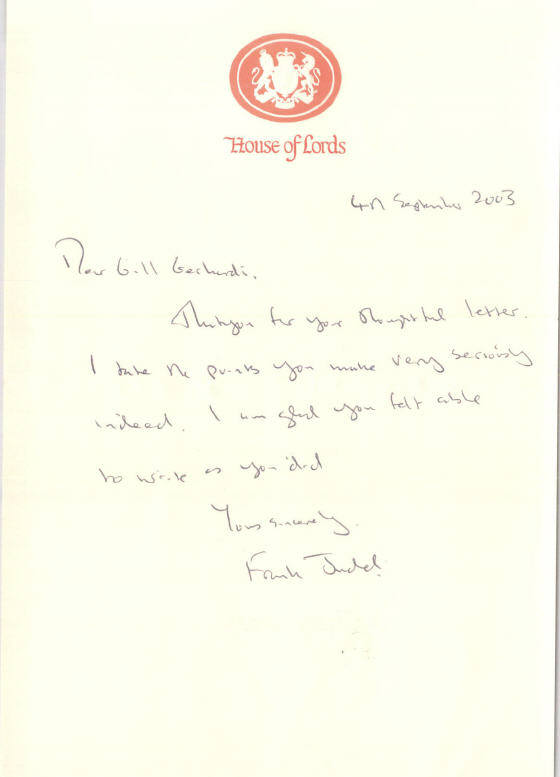 House of Lords
4th September 2003
Dear Gill Gerhardi,
Thankyou for your thoughtful letter.
I take the points you make very seriously
indeed. I am glad you felt able
to write as you did
Yours sincerely,
Frank Judd